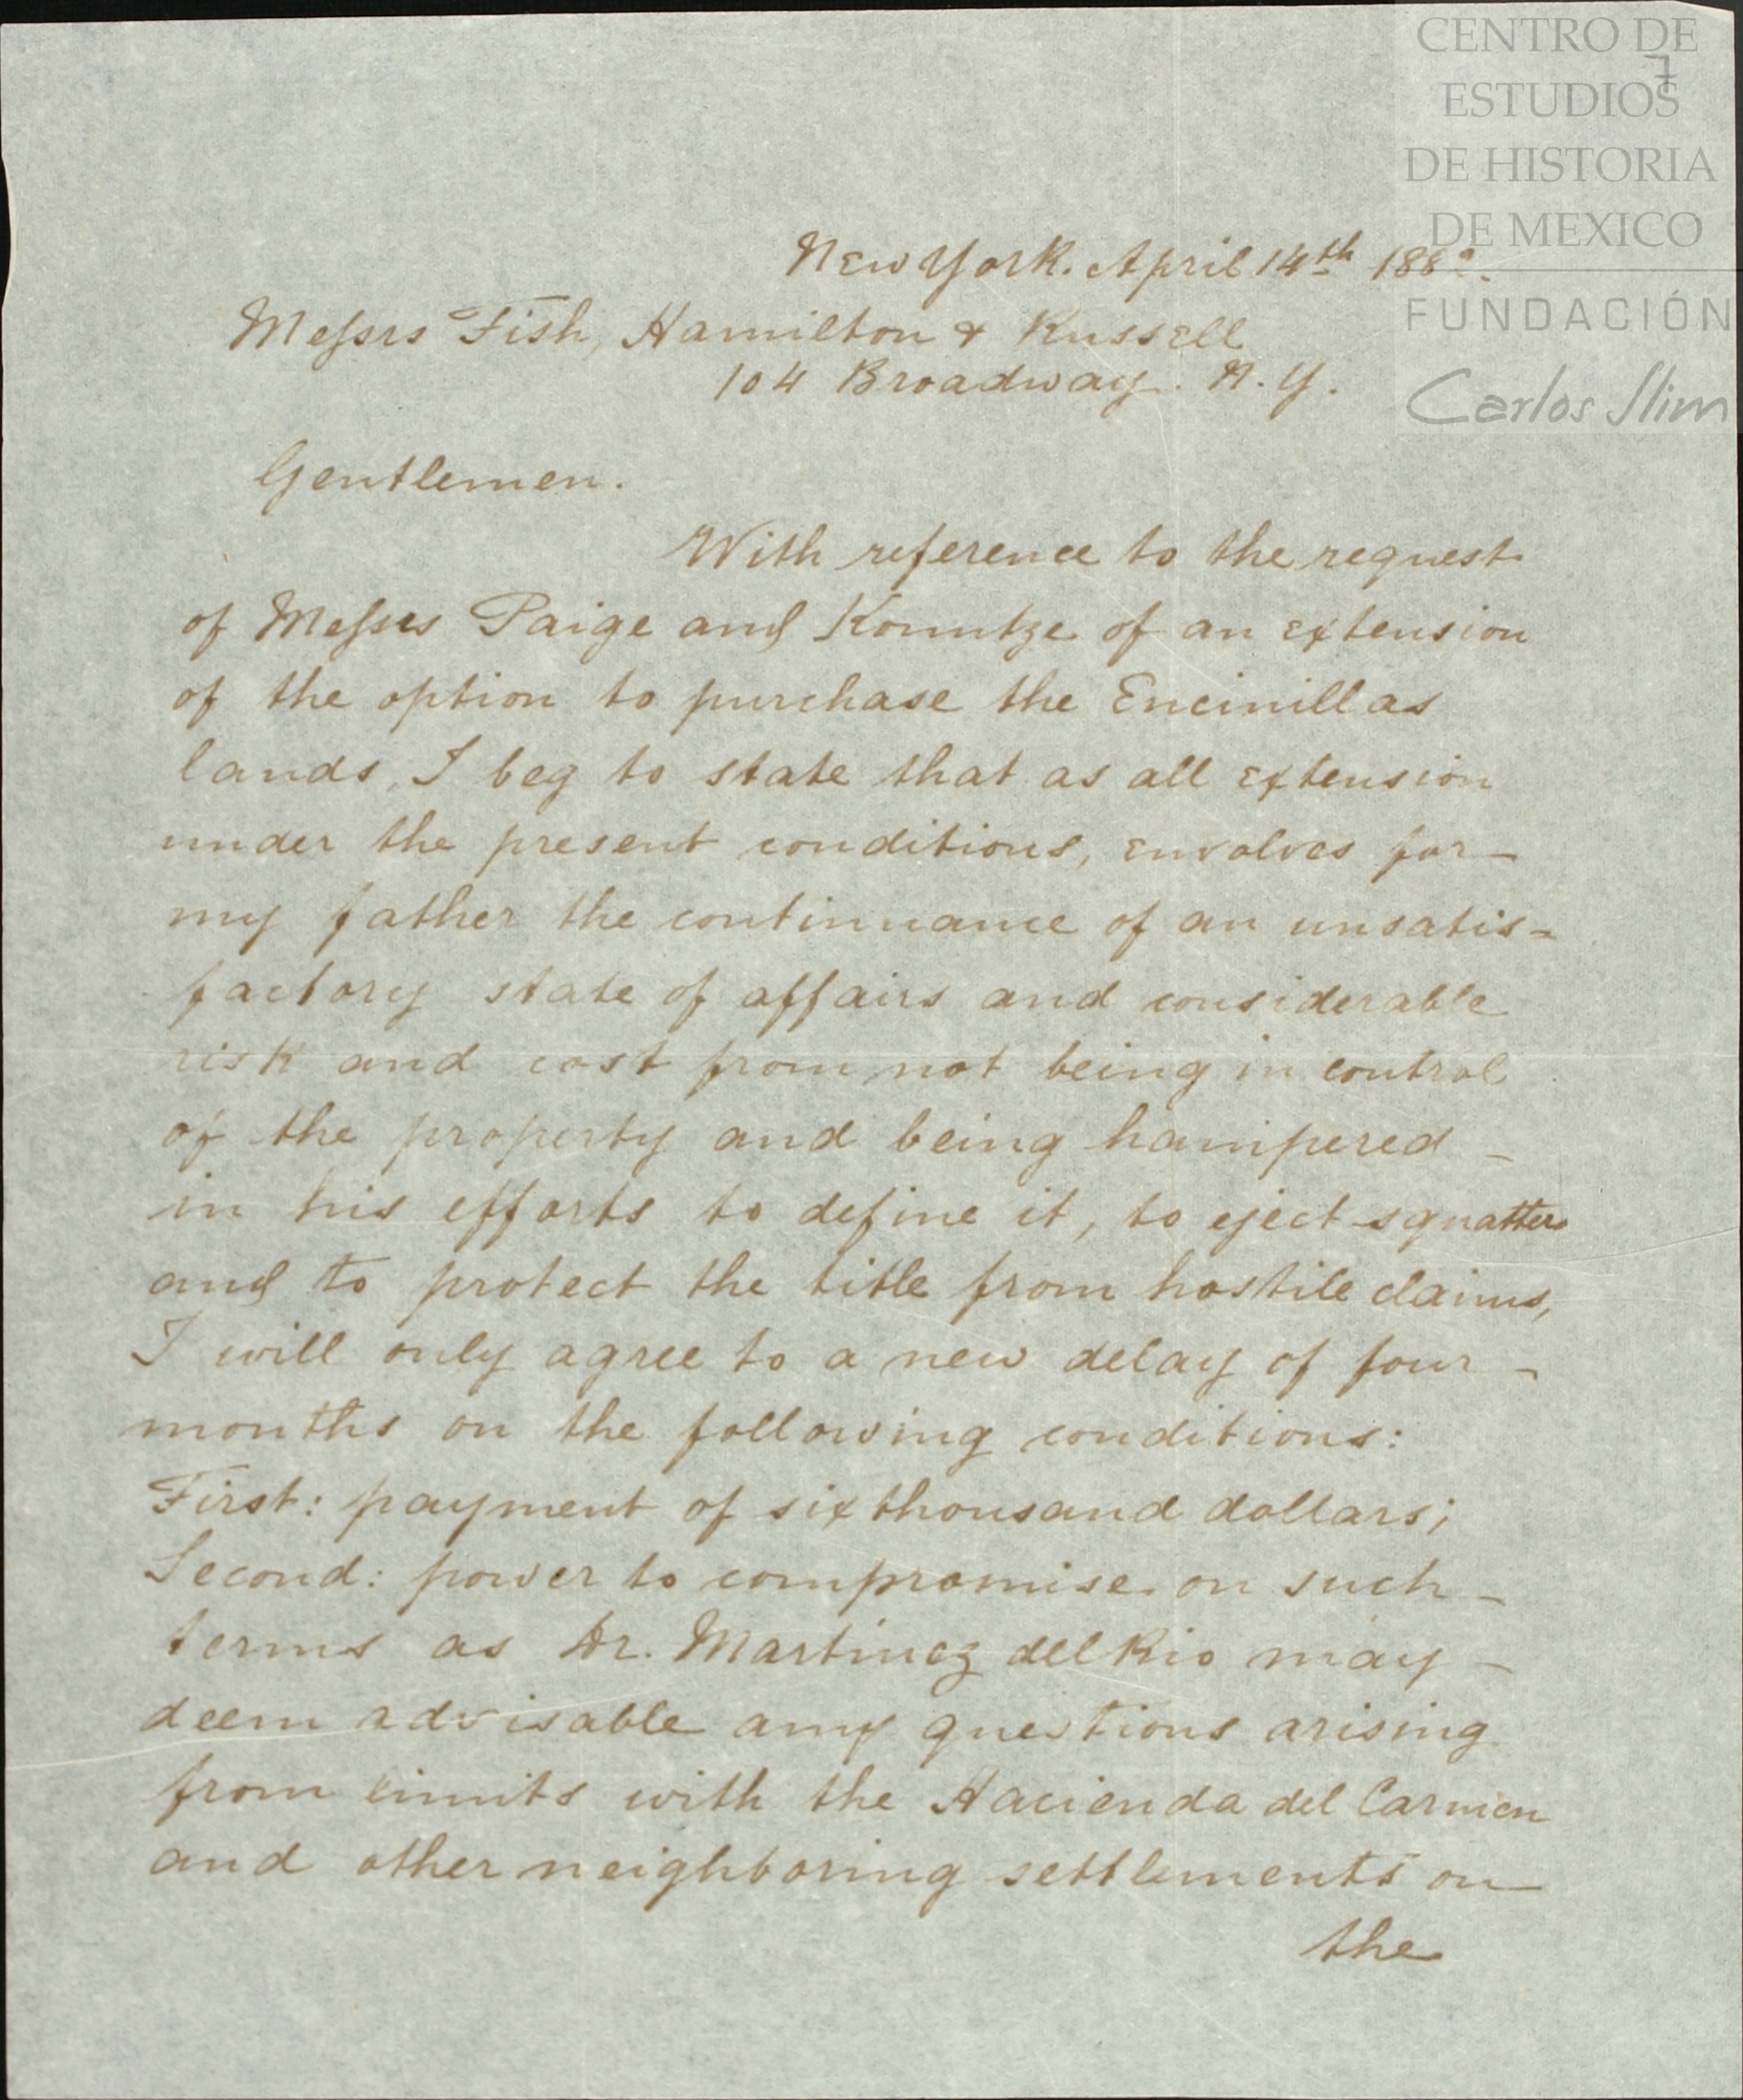 CENTRO DE
ESTUDIOS
DE HISTORIA
DE MEXICO
FUNDACIÓN
Carlos Slim
7
New York. April 14th 188
Messrs Fish, Hamilton & Russell
104 Broadway. N.Y.
Gentlemen.
With reference to the request
of Messrs Paige and Kountze of an extension
of the option to purchase the Encinillas
lands, I beg to state that as all extension
under the present conditions, envolves for-
my father the continuance of an unsatis=
factory state of affairs and considerable
risk and cost from not being in control
of the property and being hampered -
in his efforts to define it, to eject squatters
and to protect the title from hostile claims,
I will only agree to a new delay of four -
months on the following conditions:
First: payment of six thousand dollars;
Second: power to compromise on such -
terms as Dr. Martinez del Rio may -
deem advisable any questions arising
from limits with the Hacienda del Carmen
and other neighboring settlements on
the